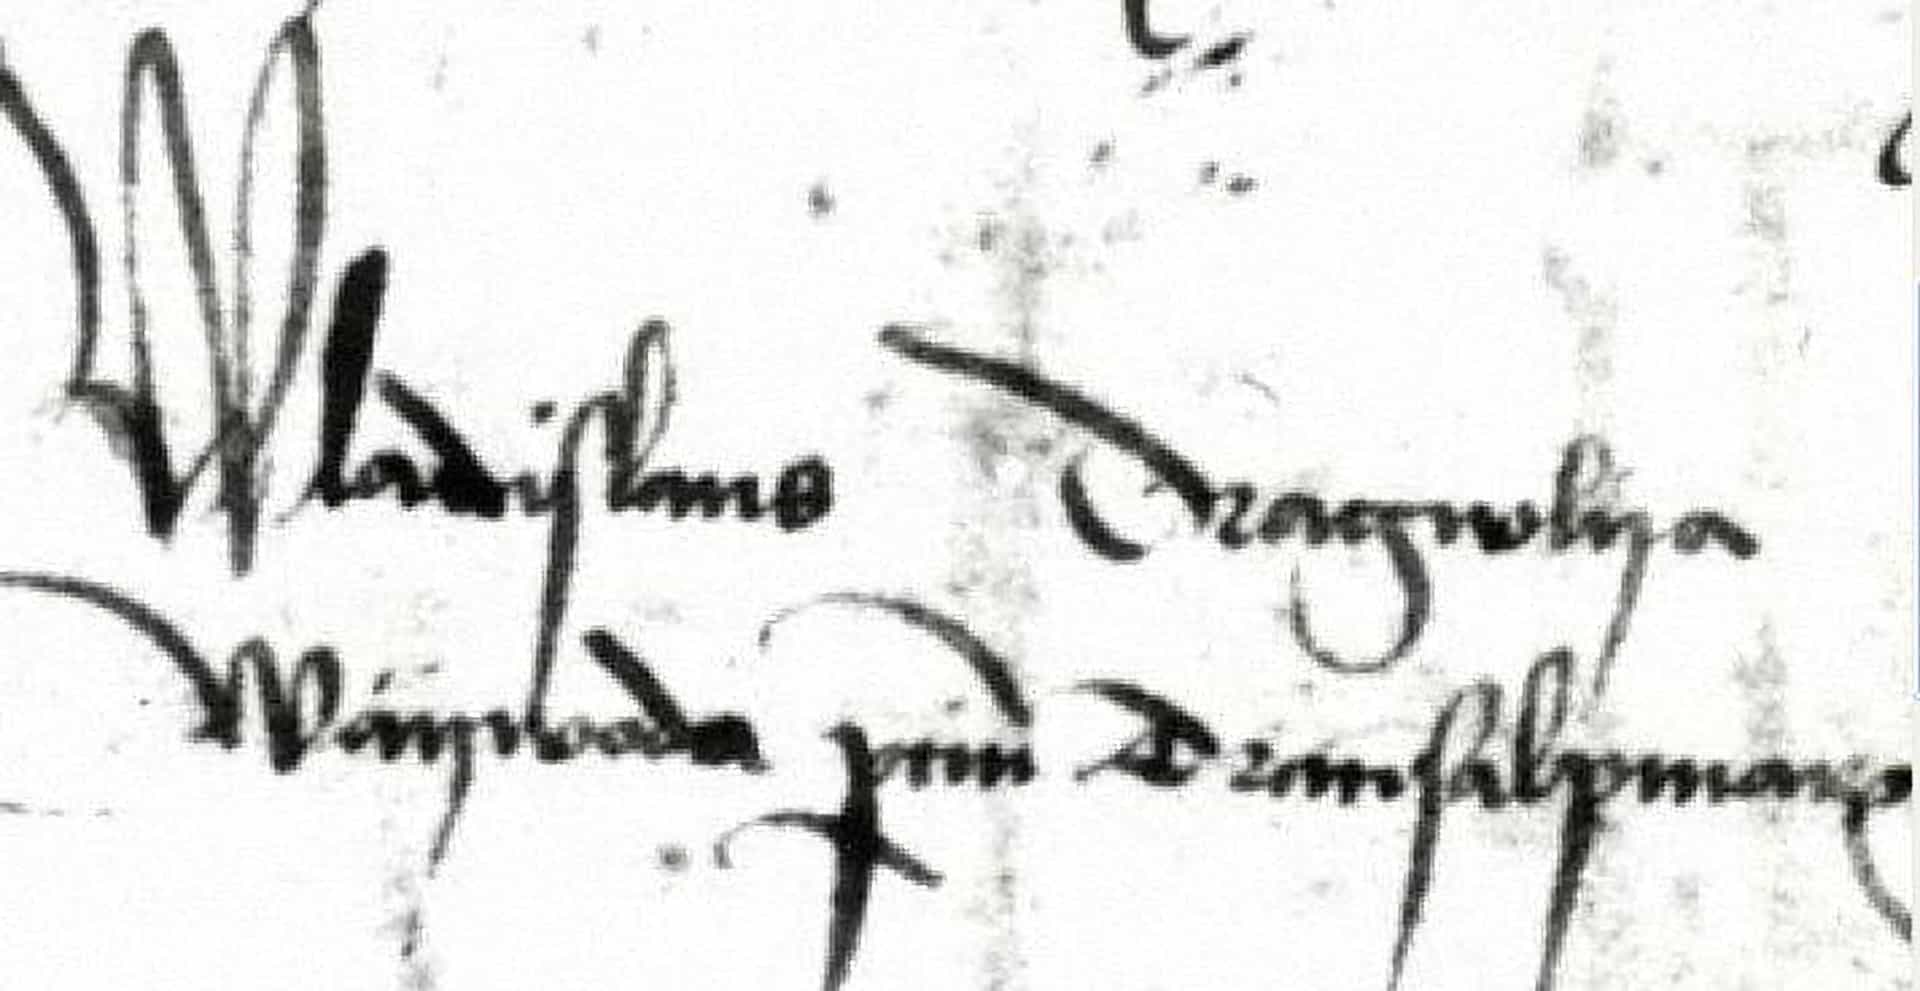 Wladislaus Dragwlya
Waywoda partium Transalpinarum